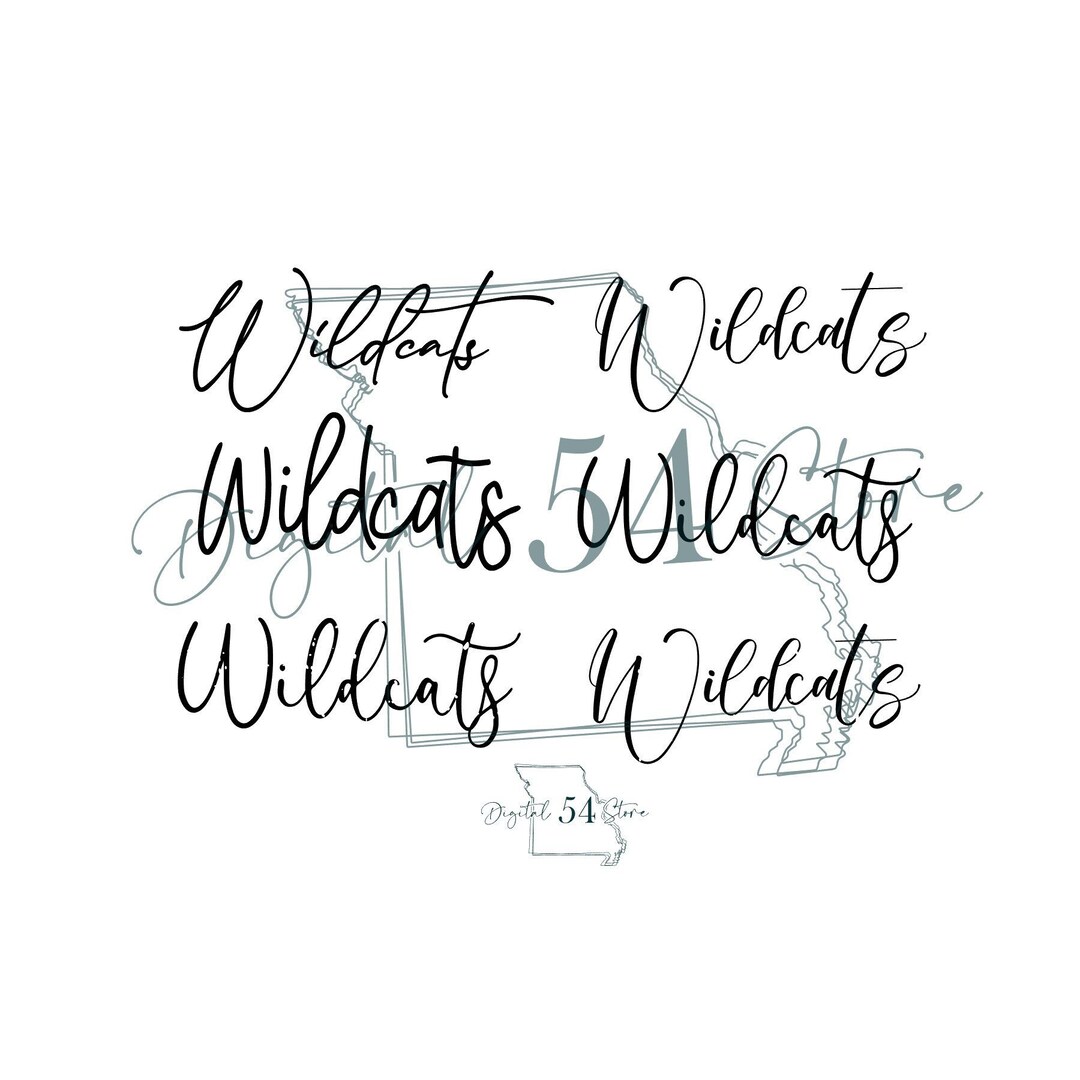 Wildcats Wildcats
Wildcats Wildcats
Digital 54 Store
Wildcats Wildcats
Digital 54 Store